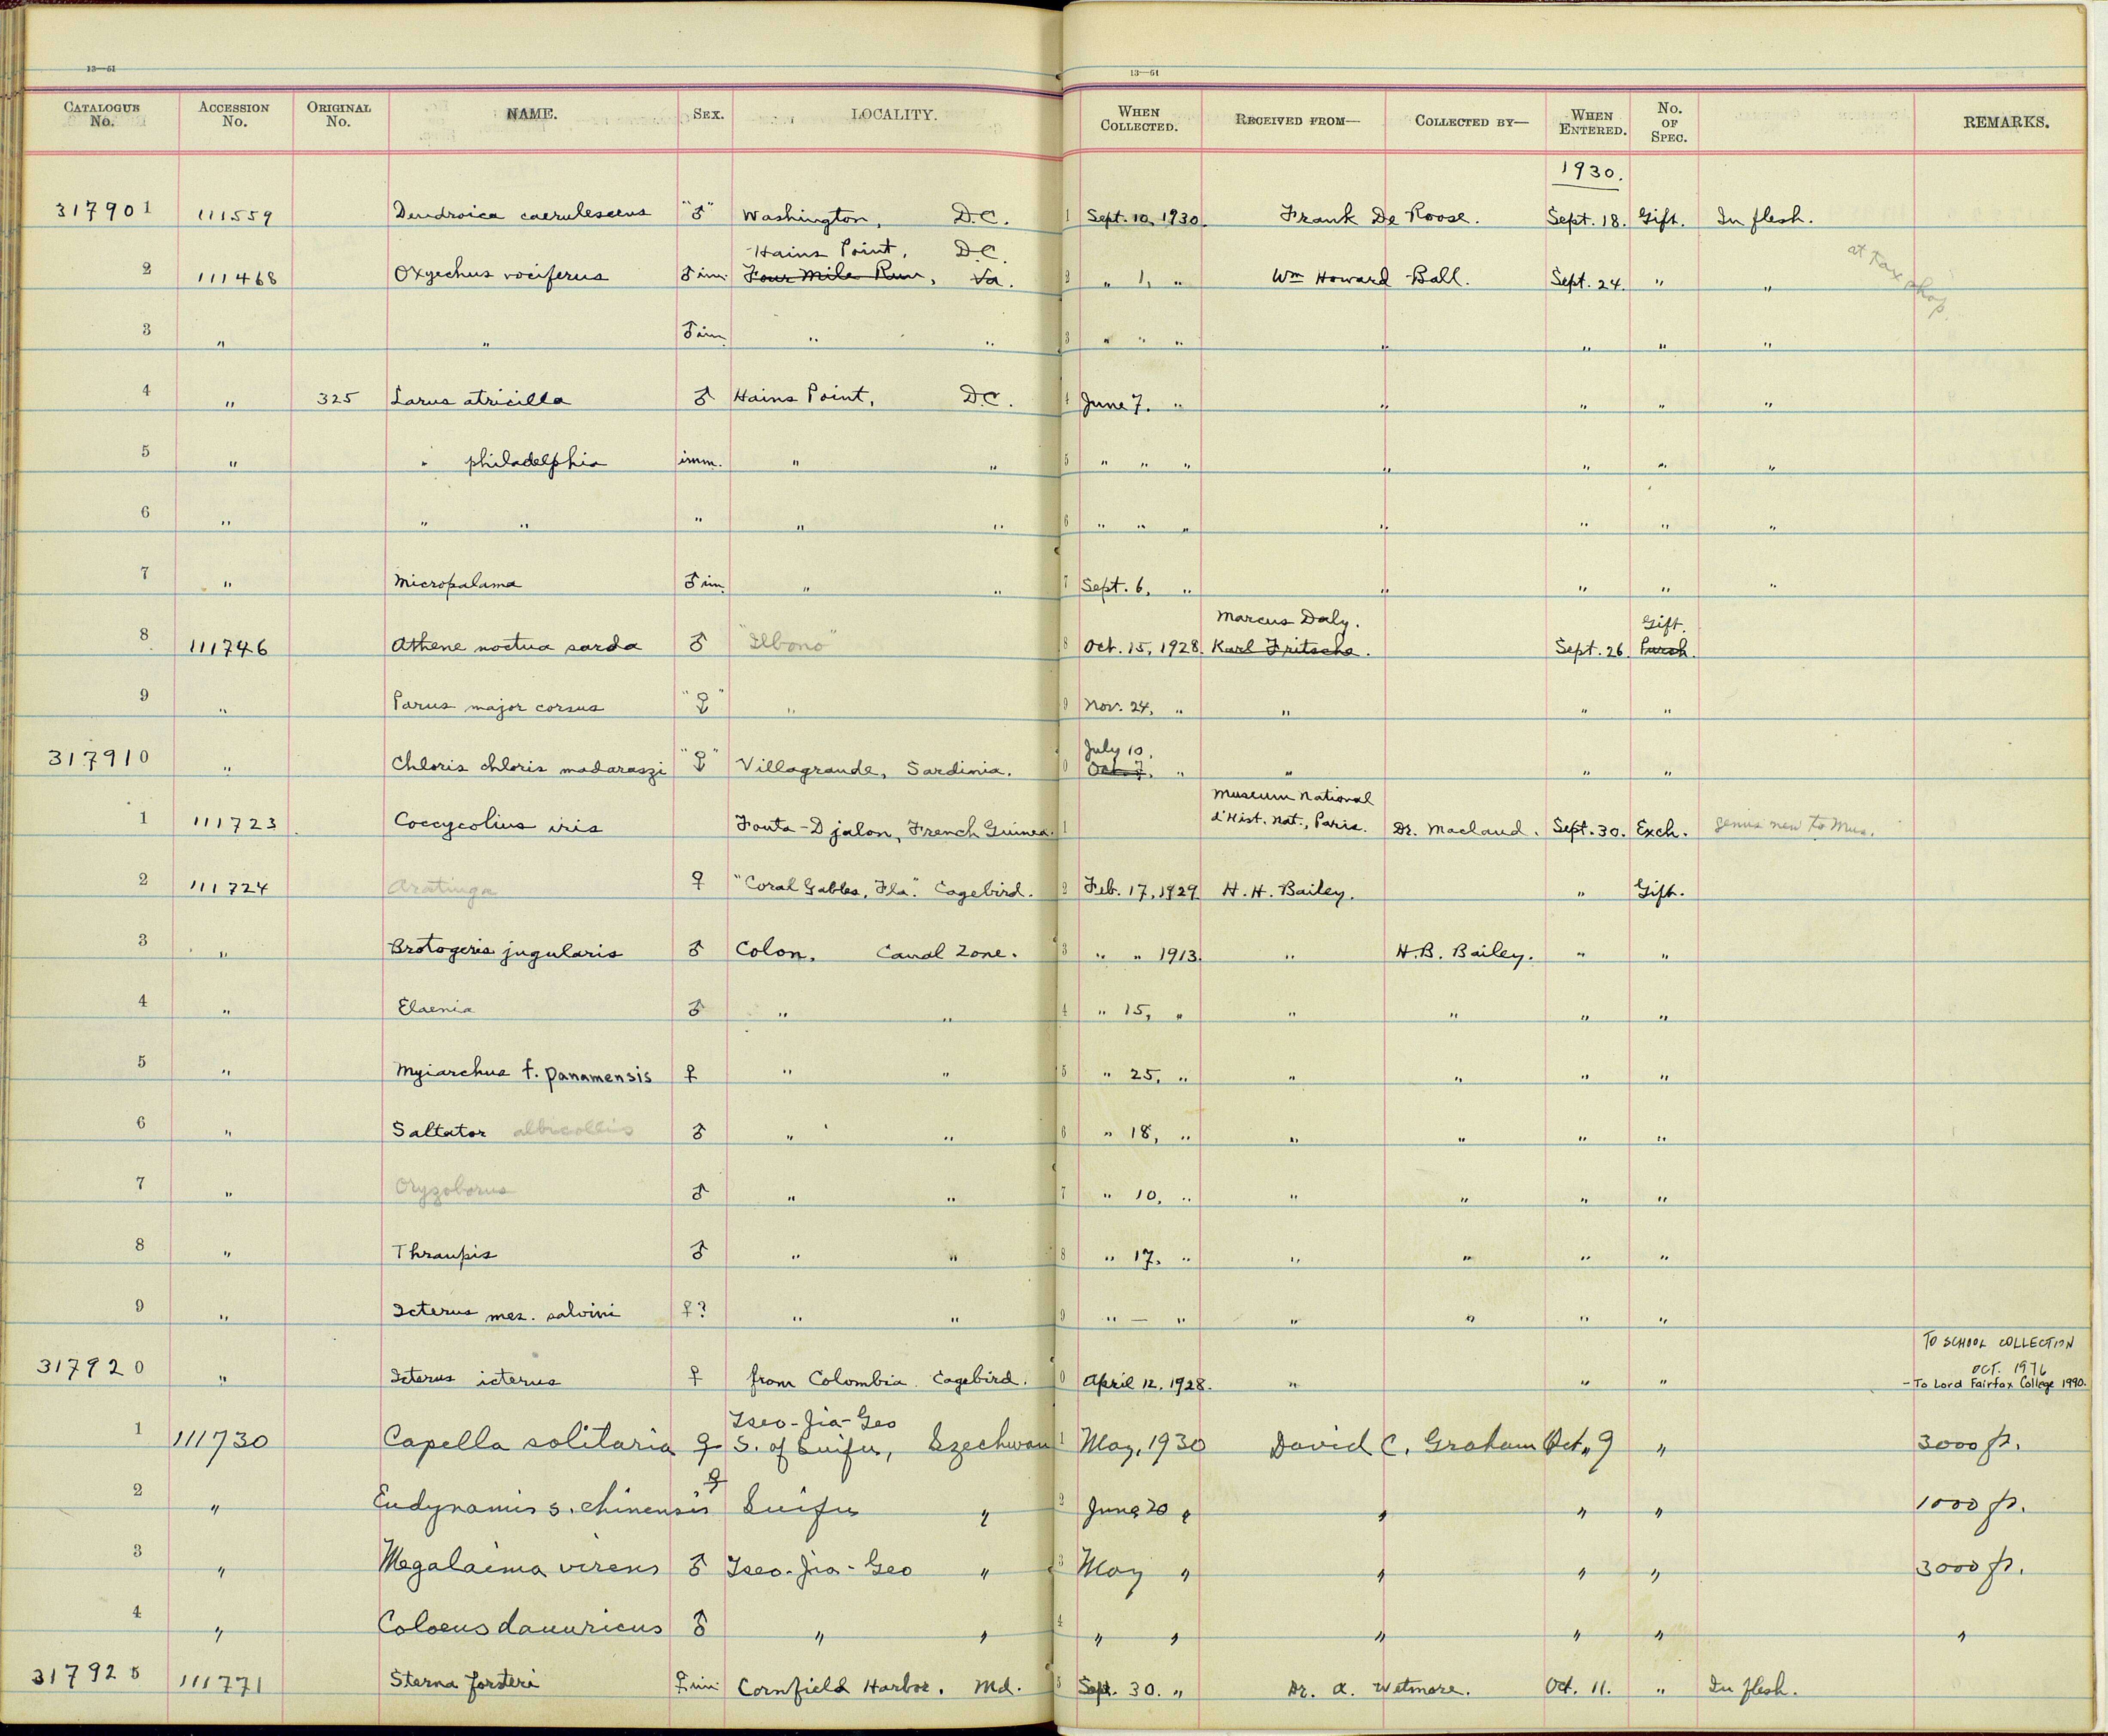 13—51
13—51
CATALOGUE No. ACCESSION No. ORIGINAL No. NAME. SEX. LOCALITY. WHEN COLLECTED. RECEIVED FROM— COLLECTED BY— WHEN ENTERED. No. OF SPEC. REMARKS.
1930.
317901 111559 Dendroica caerulescens "♂" Washington, D.C. 1 Sept. 10, 1930. Frank De Roose. Sept. 18. Gift. In flesh.
Hains Point, D.C.
2 111468 Oxyechus vociferus ♂ im. Four Mile Run, Va. 2 " 1, " Wm Howard Ball. Sept. 24. " " at tax shop
3 " " ♂ im. " " 3 " " " " " " "
4 " 325 Larus atricilla ♂ Hains Point, D.C. 4 June 7. " " " " "
5 " " philadelphia imm. " " 5 " " " " " " "
6 " " " " " " 6 " " " " " " "
7 " Micropalama ♂ im. " " 7 Sept. 6, " " " " "
Marcus Daly. Gift.
8 111746 Athene noctua sarda ♂ "Ilbono" 8 Oct. 15, 1928. Karl Fritsche. Sept. 26. Purch.
9 " Parus major corsus "♀" " 9 Nov. 24, " " " "
July 10.
317910 " Chloris chloris madaraszi "♀" Villagrande, Sardinia. 0 Oct. 7, " " " "
Museum National
1 111723 Coccycolius iris Fouta-Djalon, French Guinea. 1 d'Hist. Nat., Paris. Dr. Maclaud. Sept. 30. Exch. genus new to Mus.
2 111724 Aratinga ♀ "Coral Gables, Fla." Cagebird. 2 Feb. 17, 1929 H. H. Bailey. " Gift.
3 " Brotogeris jugularis ♂ Colon, Canal Zone. 3 " " 1913. " H. B. Bailey. " "
4 " Elaenia ♂ " " 4 " 15, " " " " "
5 " Myiarchus f. panamensis ♀ " " 5 " 25, " " " " "
6 " Saltator albicollis ♂ " " 6 " 18, " " " " "
7 " Oryzoborus ♂ " " 7 " 10, " " " " "
8 " Thraupis ♂ " " 8 " 17, " " " " "
9 " Icterus mes. salvini ♀? " " 9 " — " " " " "
TO SCHOOL COLLECTION
OCT. 1976
317920 " Icterus icterus ♀ from Colombia. Cagebird. 0 April 12, 1928. " " " - To Lord Fairfax College 1990.
Tseo-Jia-Geo
1 111730 Capella solitaria ♀ S. of Suifu, Szechwan 1 May, 1930 David C. Graham Oct. 9 " 3000 ft.
2 " Eudynamis s. chinensis ♀ Suifu " 2 June 20 " " " " 1000 ft.
3 " Megalaima virens ♂ Tseo-Jia-Geo " 3 May " " " " 3000 ft.
4 " Coloeus dauuricus ♂ " " 4 " " " " " "
317925 111771 Sterna forsteri ♀ im. Cornfield Harbor, Md. 5 Sept. 30. " Dr. A. Wetmore. Oct. 11. " In flesh.